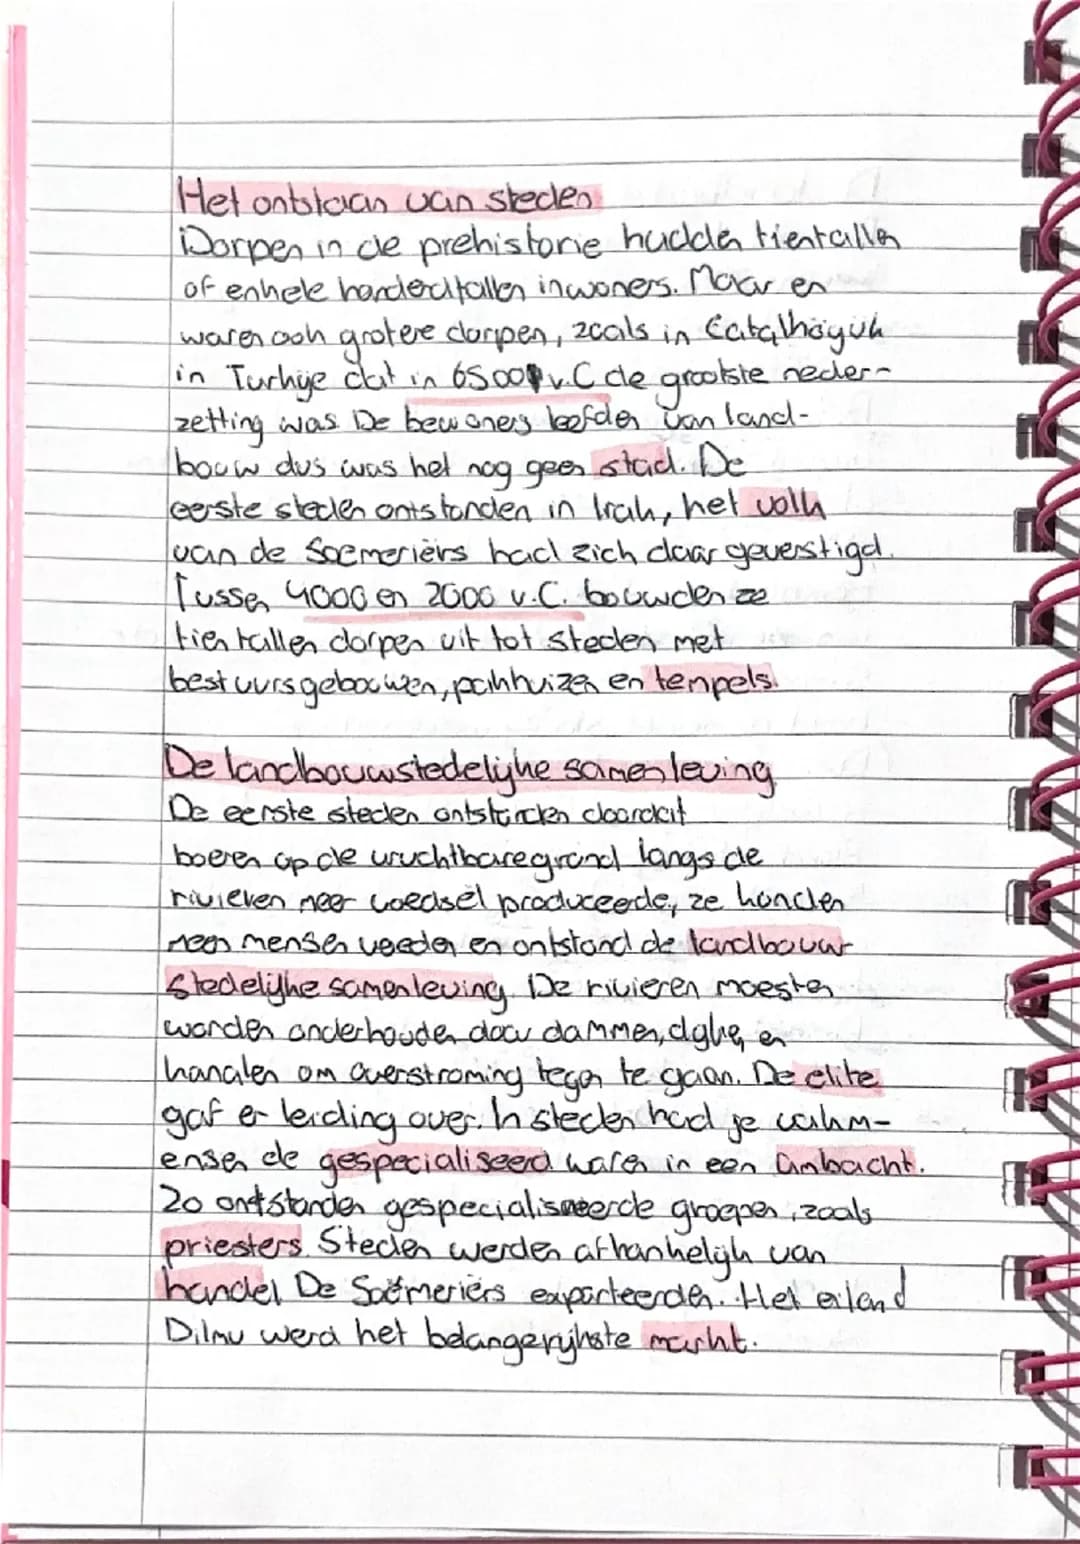 Het ontstaan van steden
Dorpen in de prehistorie hadden tientallen
of enkele honderdtallen inwoners. Maar er
waren ook grotere dorpen, zoals in Çatalhöyük
in Turkije dat in 6500 v.C de grootste neder-
zetting was. De bewoners leefden van land-
bouw dus was het nog geen stad. De
eerste steden ontstonden in Irak, het volk
van de Soemeriërs had zich daar geverstigd.
Tussen 4000 en 2000 v.C. bouwden ze
tientallen dorpen uit tot steden met
bestuursgebouwen, pakhuizen en tempels.
De landbouwstedelijke samenleving
De eerste steden ontstonden doordat
boeren op de vruchtbare grond langs de
rivieren meer voedsel produceerde, ze konden
meer mensen voeden en ontstond de landbouw
stedelijke samenleving. De rivieren moesten
worden onderhouden door dammen, dijken, en
kanalen om overstroming tegen te gaan. De elite
gaf er leiding over. In steden had je vakm-
ensen die gespecialiseerd waren in een ambacht.
Zo ontstonden gespecialiseerde groepen, zoals
priesters. Steden werden afhankelijk van
handel De Soemeriërs exporteerden. Het eiland
Dilmu werd het belangerijkste markt.